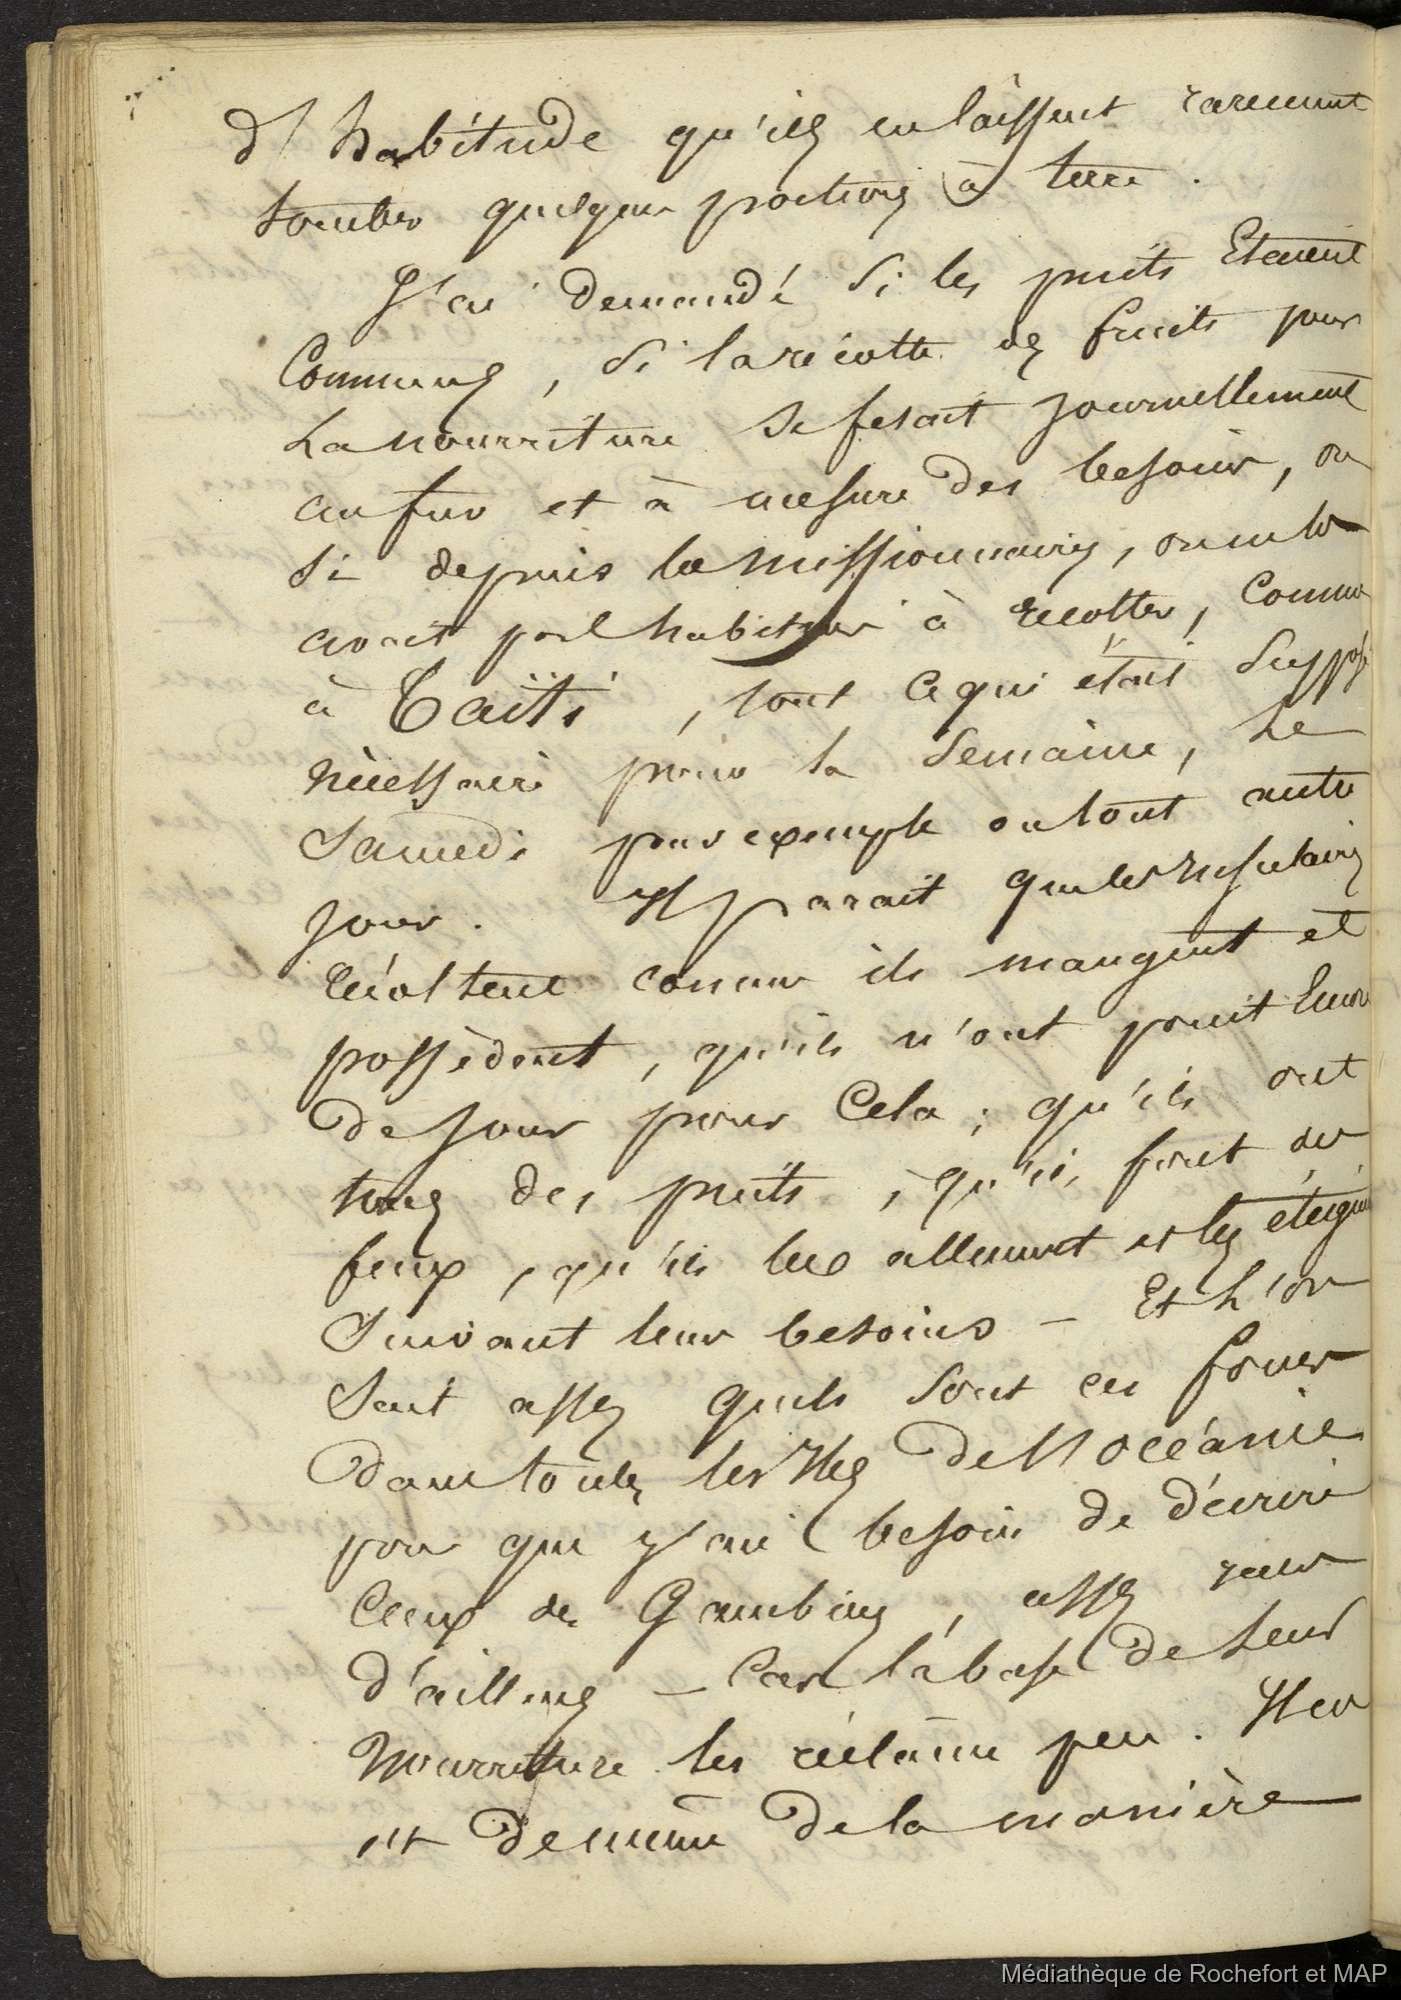 d'habitude qu'ils en laissent rarement
tomber quelques portions à terre.
J'ai demandé si les puits Etaient
Communs, si la récolte des fruits pour
La nourriture se fesait journellement
au fur et à mesure des besoins, ou
si depuis les missionnaires, on ne les
avait pas habitués à récolter, comme
à Taïti, tout ce qui était supposé
nécessaire pour la semaine, le
Samedi par exemple ou tout autre
jour. Il parait que les Insulaires
récoltent comme ils mangent et
possèdent, qu'ils n'ont point Encore
de jour pour Cela; qu'ils ont
tous des puits, qu'ils font des
feux, qu'ils les allument et les éteignent
Suivant leurs besoins - Et L'on
Sait assez quels sont ces fours
dans toutes les Iles de l'océanie
pour que j'ai besoin de décrire
Ceux de Gambier, assez rares
d'ailleurs - Car la base de leur
Nourriture les réclame peu. Il en
est de même de la manière
Médiathèque de Rochefort et MAP